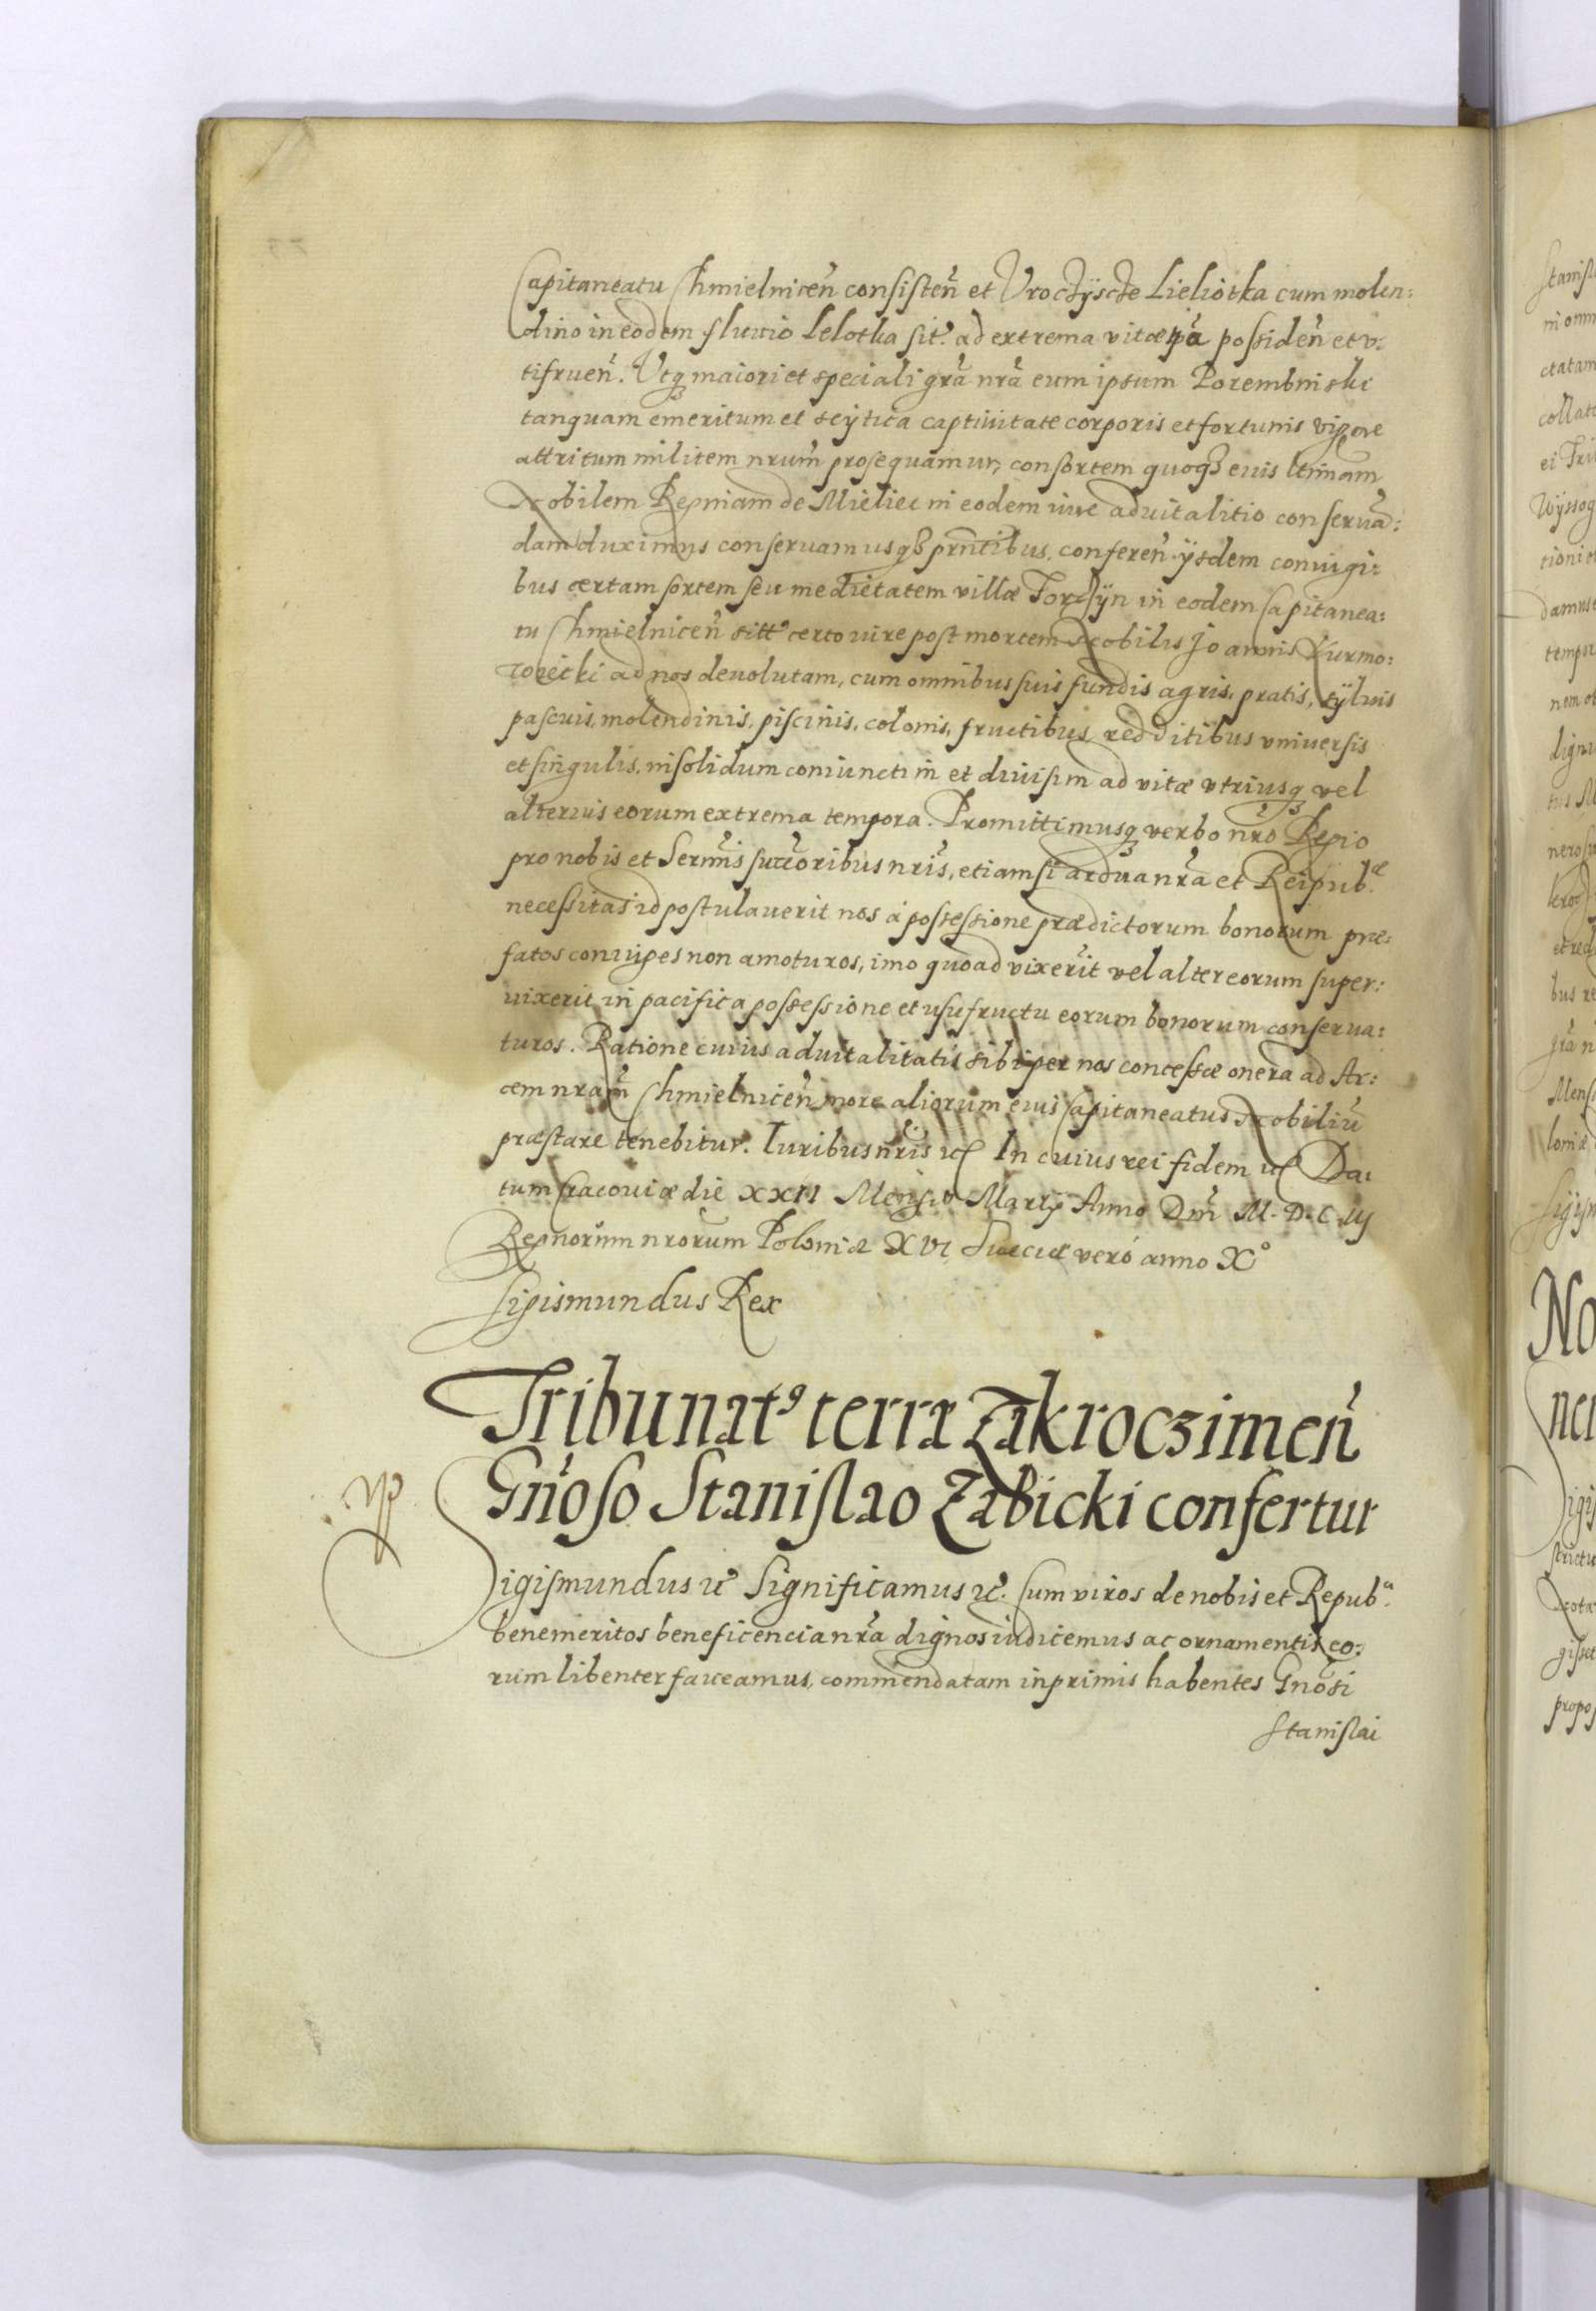 Capitaneatu Chmielnicen̄ consisten̄ et Uroczÿscze Lieliotka cum molen:
dino in eodem fluvio Lelotka sit. ad extrema vitæ possiden̄ et v:
tifruen̄. Utq maiori et speciali grā nrā eum ipsum Porembniski
tanquam emeritum et scÿtica captiuitate corporis et fortunis
attritum militem nrum̄ prosequamur, consortem quoqȝ euis ltimam
Nobilem Regniam de Mieliec in eodem iure aduitalitio conseruā:
dam duximus conseruamusqȝ prn̄tibus, conferen̄ ÿsdem coniugi:
bus certam sortem seu medietatem villæ in eodem Capitanea:
tu Chmielnicen̄ sitt certo iure post mortem Nobilis Joannis Kurmo:
ad nos deuolutam, cum omnibus suis fundis agris, pratis, sÿluis
pascuis, molendinis, piscinis, colonis, fructibus, redditibus vniuersis
et singulis, insolidum coniunctim et diuisim ad vitæ vtriusq vel
alterius eorum extrema tempora. Promittimusq verbo nrō Regio
pro nobis et Serm̄is succōribus nrīs, etiamsi ardua nrā et Reipub.æ
necessitas id postulauerit nos á possessione prædictorum bonorum præ:
fatos coniuges non amoturos, imo quoad vixerīt vel alter eorum super:
uixerit in pacifica possessione et usufructu eorum bonorum conserua:
turos. Ratione cuius aduitalitatis sibi per nos concessæ onera ad Ar:
cem nram̄ Chmielnicen̄ more aliorum eius Capitaneatus Nobiliū
præstare tenebitur. Iuribus nrīs ec In cuius rei fidem ec Da:
tum Cracouiæ die XXII Mensis Martÿ Anno Dm̄ M. D. C. iij
Regnorum nrorum Poloniæ XVI Sueciæ veró anno X°
Sigismundus Rex
Tribunat⁹ terræ Zakroczimen̄
Gn̄oso Stanislao Zabicki confertur
Sigismundus ec Significamus ec. Cum viros de nobis et Repub.a
benemeritos beneficencia nrā dignos iudicemus ac ornamentis eo:
rum libenter faueamus, commendatam inprimis habentes Gn̄osi
Stanislai